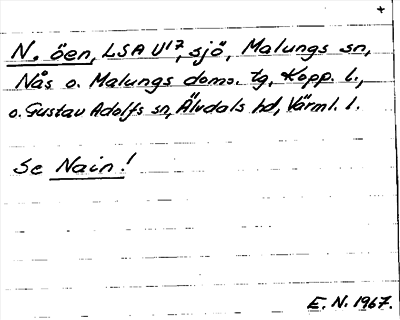 +
N. öen, LSA U17, sjö, Malungs sn,
Nås o. Malungs doms. tg, Kopp. l.,
o. Gustav Adolfs sn, Älvdals hd, Värml. l.
Se Nain!
E. N. 1967.